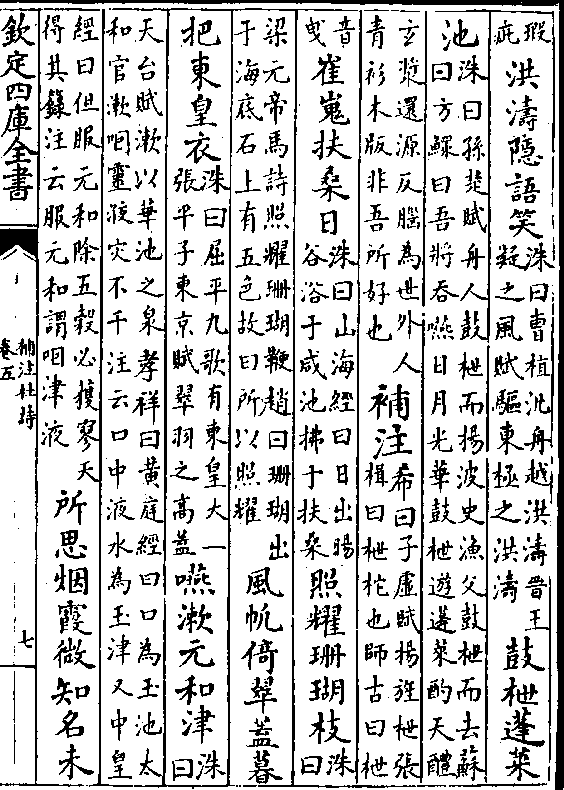 瑕疵洪濤隱語笑洙曰曹植汎舟越洪濤晉王凝之風賦驅東極之洪濤鼓枻蓬萊
池洙曰孫楚賦舟人鼓枻而揚波史漁父鼓枻而去蘇曰方鏍曰吾將吞嚥日月光華鼓枻遊蓬萊酌天醴
玄漿還源反腦為世外人青衫木版非吾所好也補注希曰子虛賦揚旌枻張楫曰枻柁也師古曰枻
音曳崔嵬扶桑日洙曰山海經曰日出暘谷浴于咸池拂于扶桑照耀珊瑚枝洙曰
梁元帝馬詩照耀珊瑚鞭趙曰珊瑚出于海底石上有五色故曰所以照耀風帆倚翠蓋暮
把東皇衣洙曰屈平九歌有東皇太一張平子東京賦翠羽之高蓋嚥漱元和津洙曰
天台賦漱以華池之泉孝祥曰黃庭經曰口為玉池太和官漱咽靈液災不干注云口中液水為玉津又中皇
經曰但服元和除五穀必獲寥天得其籙注云服元和謂咽津液所思烟霞微知名未
欽定四庫全書
補注杜詩
卷五
七